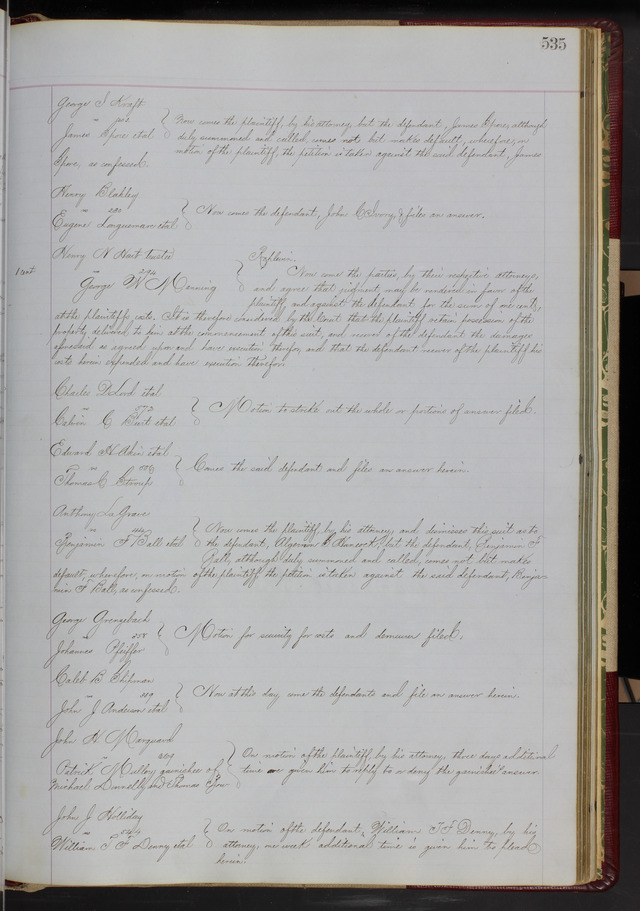 535
George I Kraft
vs
James Spore etal
Now comes the plaintiff, by his attorney, but the defendant, James Spore, although
duly summoned and called, comes not but makes default, wherefore, on
motion of the plaintiff, the petition is taken against the said defendant, James
Spore, as confessed.
Henry Blakley
vs
Eugene Longuemare etal
Now comes the defendant, John C Ivory, & files an answer.
Henry N Hart trustee
vs 294
George W Manning
1 cent
Replevin.
Now come the parties, by their respective attorneys,
and agree that judgment may be rendered in favor of the
plaintiff, and against the defendant for the sum of one cent,
at the plaintiffs costs. It is therefore considered by the Court that the plaintiff retain possession of the
property delivered to him at the commencement of this suit, and recover of the defendant the damages
aforesaid as agreed upon and have execution therefor, and that the defendant recover of the plaintiff his
costs herein expended and have execution therefor.
Charles D Lord etal
vs
Calvin C Burt etal
Motion to strike out the whole or portions of answer filed.
Edward H Akin etal
vs
Thomas C Stroup
Comes the said defendant and files an answer herein.
Anthony La Grave
vs
Benjamin F Ball etal
Now comes the plaintiff, by his attorney, and dismisses this suit as to
the defendant, Algernon Hancock, but the defendant, Benjamin F
Ball, although duly summoned and called, comes not but makes
default, wherefore, on motion of the plaintiff the petition is taken against the said defendant, Benja-
min F Ball, as confessed.
George Grengebach
vs 258
Johannes Pfeiffer
Motion for security for costs and demurrer filed.
Caleb B Shipman
vs
John J Anderson etal
Now at this day come the defendants and file an answer herein.
John H Marquard
vs
Patrick Mulloy garnishee of
Michael Donnelly and Thomas
On motion of the plaintiff, by his attorney, three days additional
time are given him to reply to or deny the garnishee's answer.
John J Holliday
vs
William T F Denny etal
On motion of the defendant, William T F Denny, by his
attorney, one week additional time is given him to plead
herein.